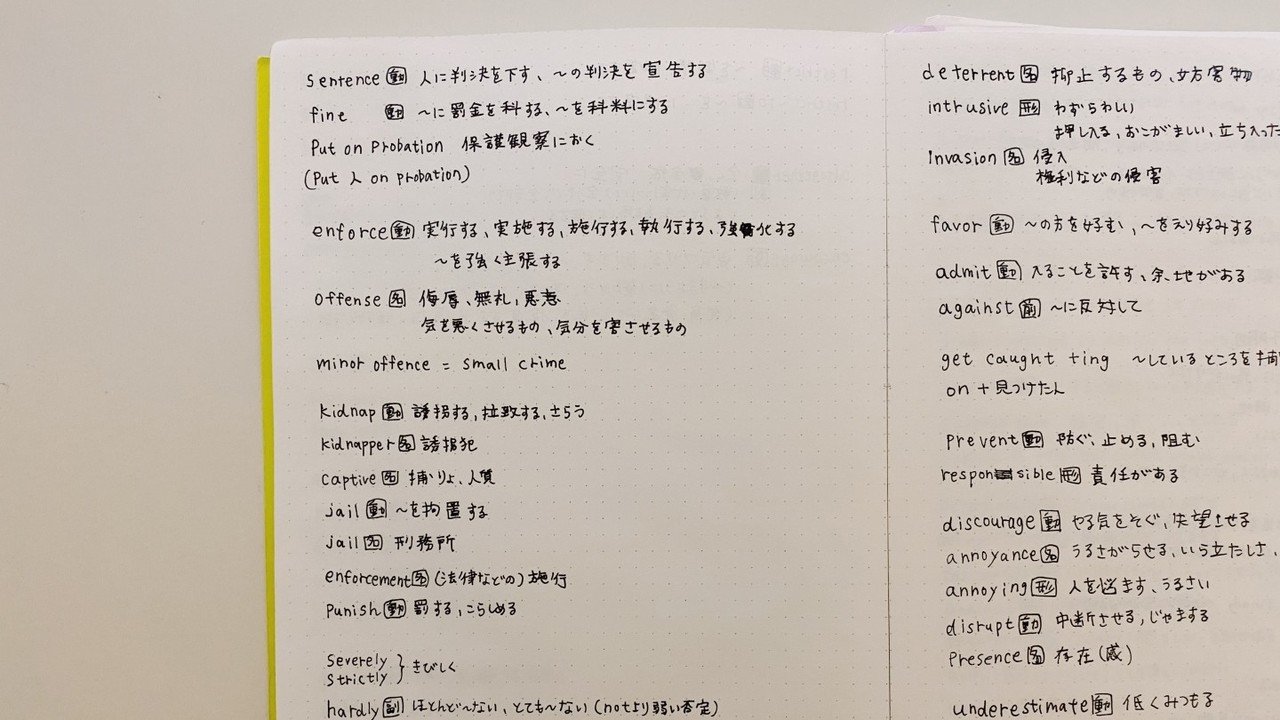 sentence 動 人に判決を下す、〜の判決を宣告する
fine 動 〜に罰金を科する、〜を科料にする
Put on Probation 保護観察におく
(Put 人 on probation)
enforce 動 実行する、実施する、施行する、執行する、強化する
〜を強く主張する
Offense 名 侮辱、無礼、悪意
気を悪くさせるもの、気分を害させるもの
minor offence = small crime
kidnap 動 誘拐する、拉致する、さらう
kidnapper 名 誘拐犯
captive 名 捕りょ、人質
jail 動 〜を拘置する
jail 名 刑務所
enforcement 名 (法律などの) 施行
Punish 動 罰する、こらしめる
Severely } きびしく
Strictly
hardly 副 ほとんど〜ない、とても〜ない (notより弱い否定)
deterrent 名 抑止するもの、妨害物
intrusive 形 わずらわしい
押し入る、おこがましい、立ち入った
Invasion 名 侵入
権利などの侵害
favor 動 〜の方を好む、〜をえり好みする
admit 動 入ることを許す、余地がある
against 前 〜に反対して
get caught +ing 〜しているところを捕
on + 見つけたん
prevent 動 防ぐ、止める、阻む
responsible 形 責任がある
discourage 動 やる気をそぐ、失望させる
annoyance 名 うるさがらせる、いら立たしさ、
annoying 形 人を悩ます、うるさい
disrupt 動 中断させる、じゃまする
Presence 名 存在(感)
underestimate 動 低くみつもる